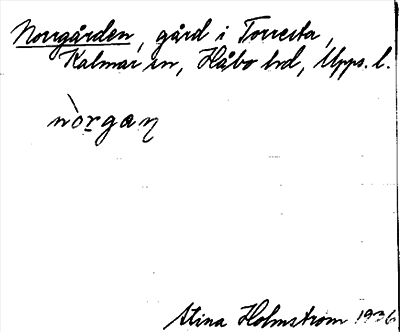 Norrgården, gård i Torresta,
Kalmar sn, Håbo hd, Upps. l.
nòrgan
Stina Holmström 1936